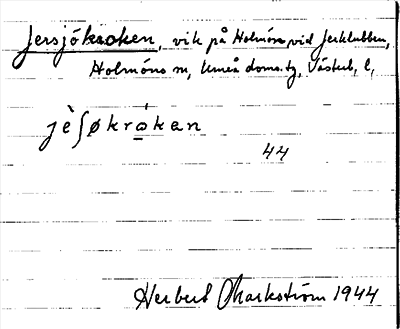 Jersjökroken, vik på Holmön vid Jerklubben,
Holmöns sn, Umeå doms.tg, Västerb. l.
jè∫økrókan
44
Herbert Markström 1944